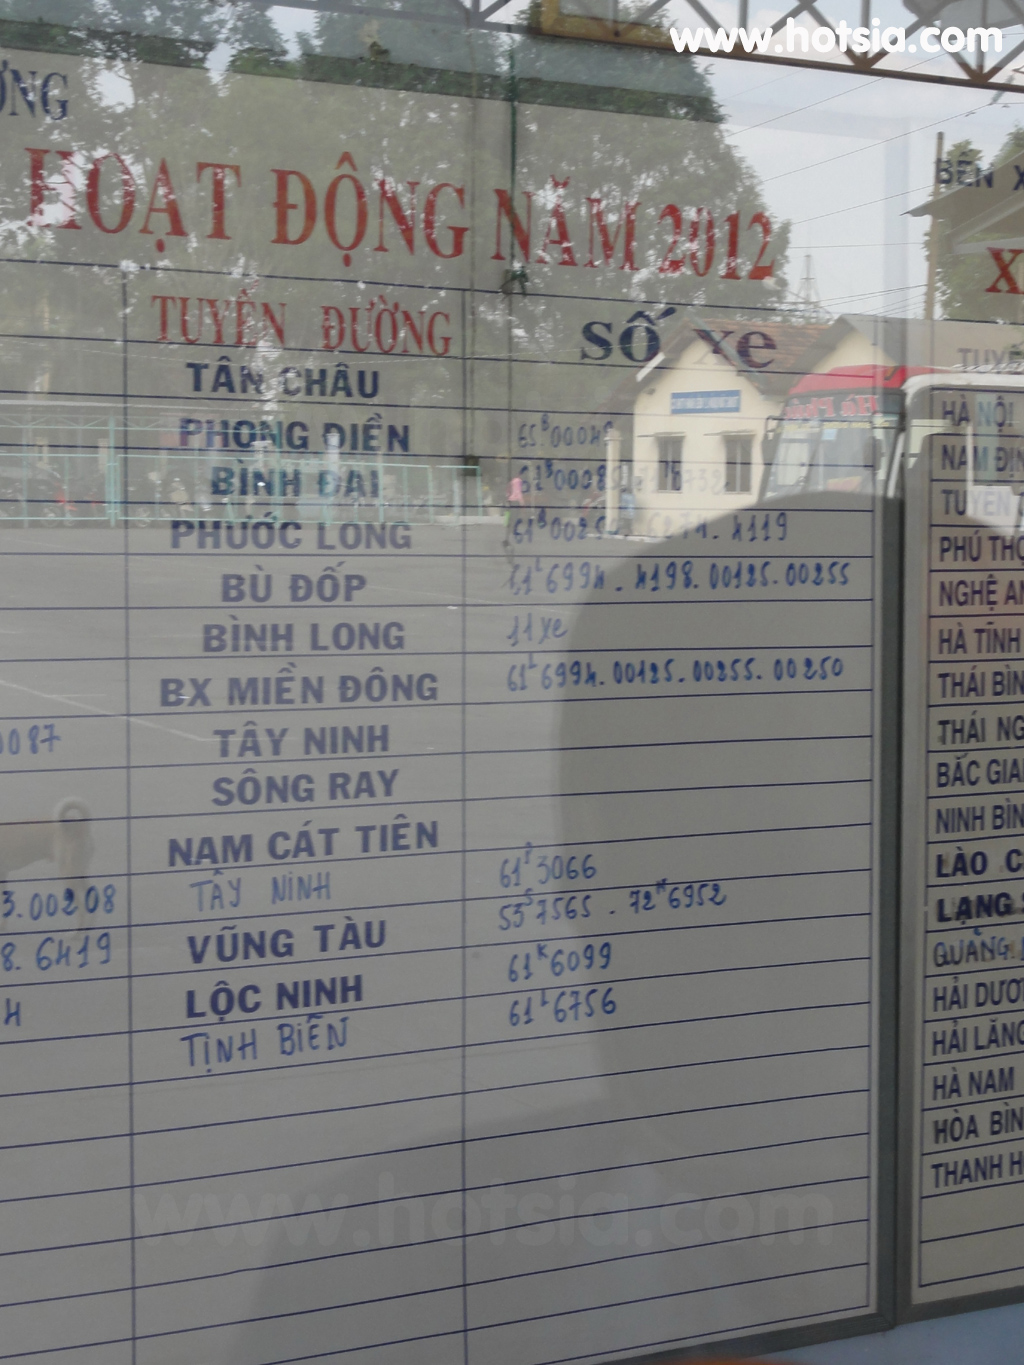 www.hotsia.com
ƠNG
HOẠT ĐỘNG NĂM 2012
TUYẾN ĐƯỜNG SỐ XE
TÂN CHÂU
PHONG ĐIỀN
BÌNH ĐẠI
PHƯỚC LONG
BÙ ĐỐP 61L 6994.4198.00125.00255
BÌNH LONG 11 xe
BX MIỀN ĐÔNG 61L 6994.00125.00255.00250
0087 TÂY NINH
SÔNG RAY
NAM CÁT TIÊN
3.00208 TÂY NINH 61 3066
8.6419 VŨNG TÀU 53S 7565 . 72K 6952
4 LỘC NINH 61K 6099
TỊNH BIÊN 61L 6756
BẾN X
X
TUYẾ
HÀ NỘI
NAM ĐỊN
TUYÊN
PHÚ THỌ
NGHỆ AN
HÀ TĨNH
THÁI BÌN
THÁI NG
BẮC GIA
NINH BÌN
LÀO C
LẠNG S
QUẢNG
HẢI DƯƠ
HẢI LĂNG
HÀ NAM
HÒA BÌN
THANH H
www.hotsia.com